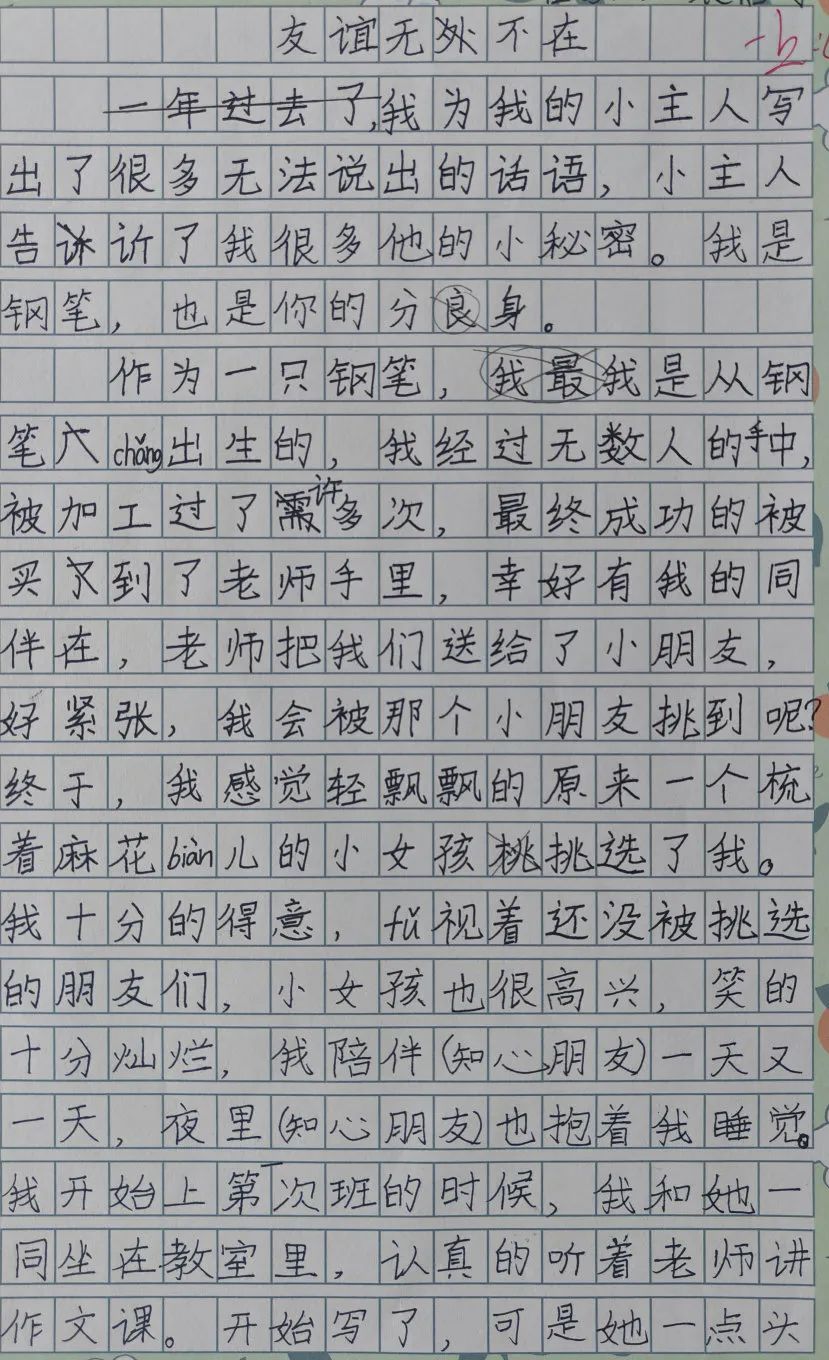 友谊无处不在
一年过去了,我为我的小主人写
出了很多无法说出的话语，小主人
告诉了我很多他的小秘密。我是
钢笔，也是你的分身。
作为一只钢笔，我最我是从钢
笔厂chǎng出生的，我经过无数人的手中,
被加工过了许多次，最终成功的被
买到了老师手里，幸好有我的同
伴在，老师把我们送给了小朋友，
好紧张，我会被那个小朋友挑到呢?
终于，我感觉轻飘飘的原来一个梳
着麻花biàn儿的小女孩挑选了我。
我十分的得意，fǔ视着还没被挑选
的朋友们，小女孩也很高兴，笑的
十分灿烂，我陪伴(知心朋友)一天又
一天，夜里(知心朋友)也抱着我睡觉。
我开始上第一次班的时候，我和她一
同坐在教室里，认真的听着老师讲
作文课。开始写了，可是她一点头